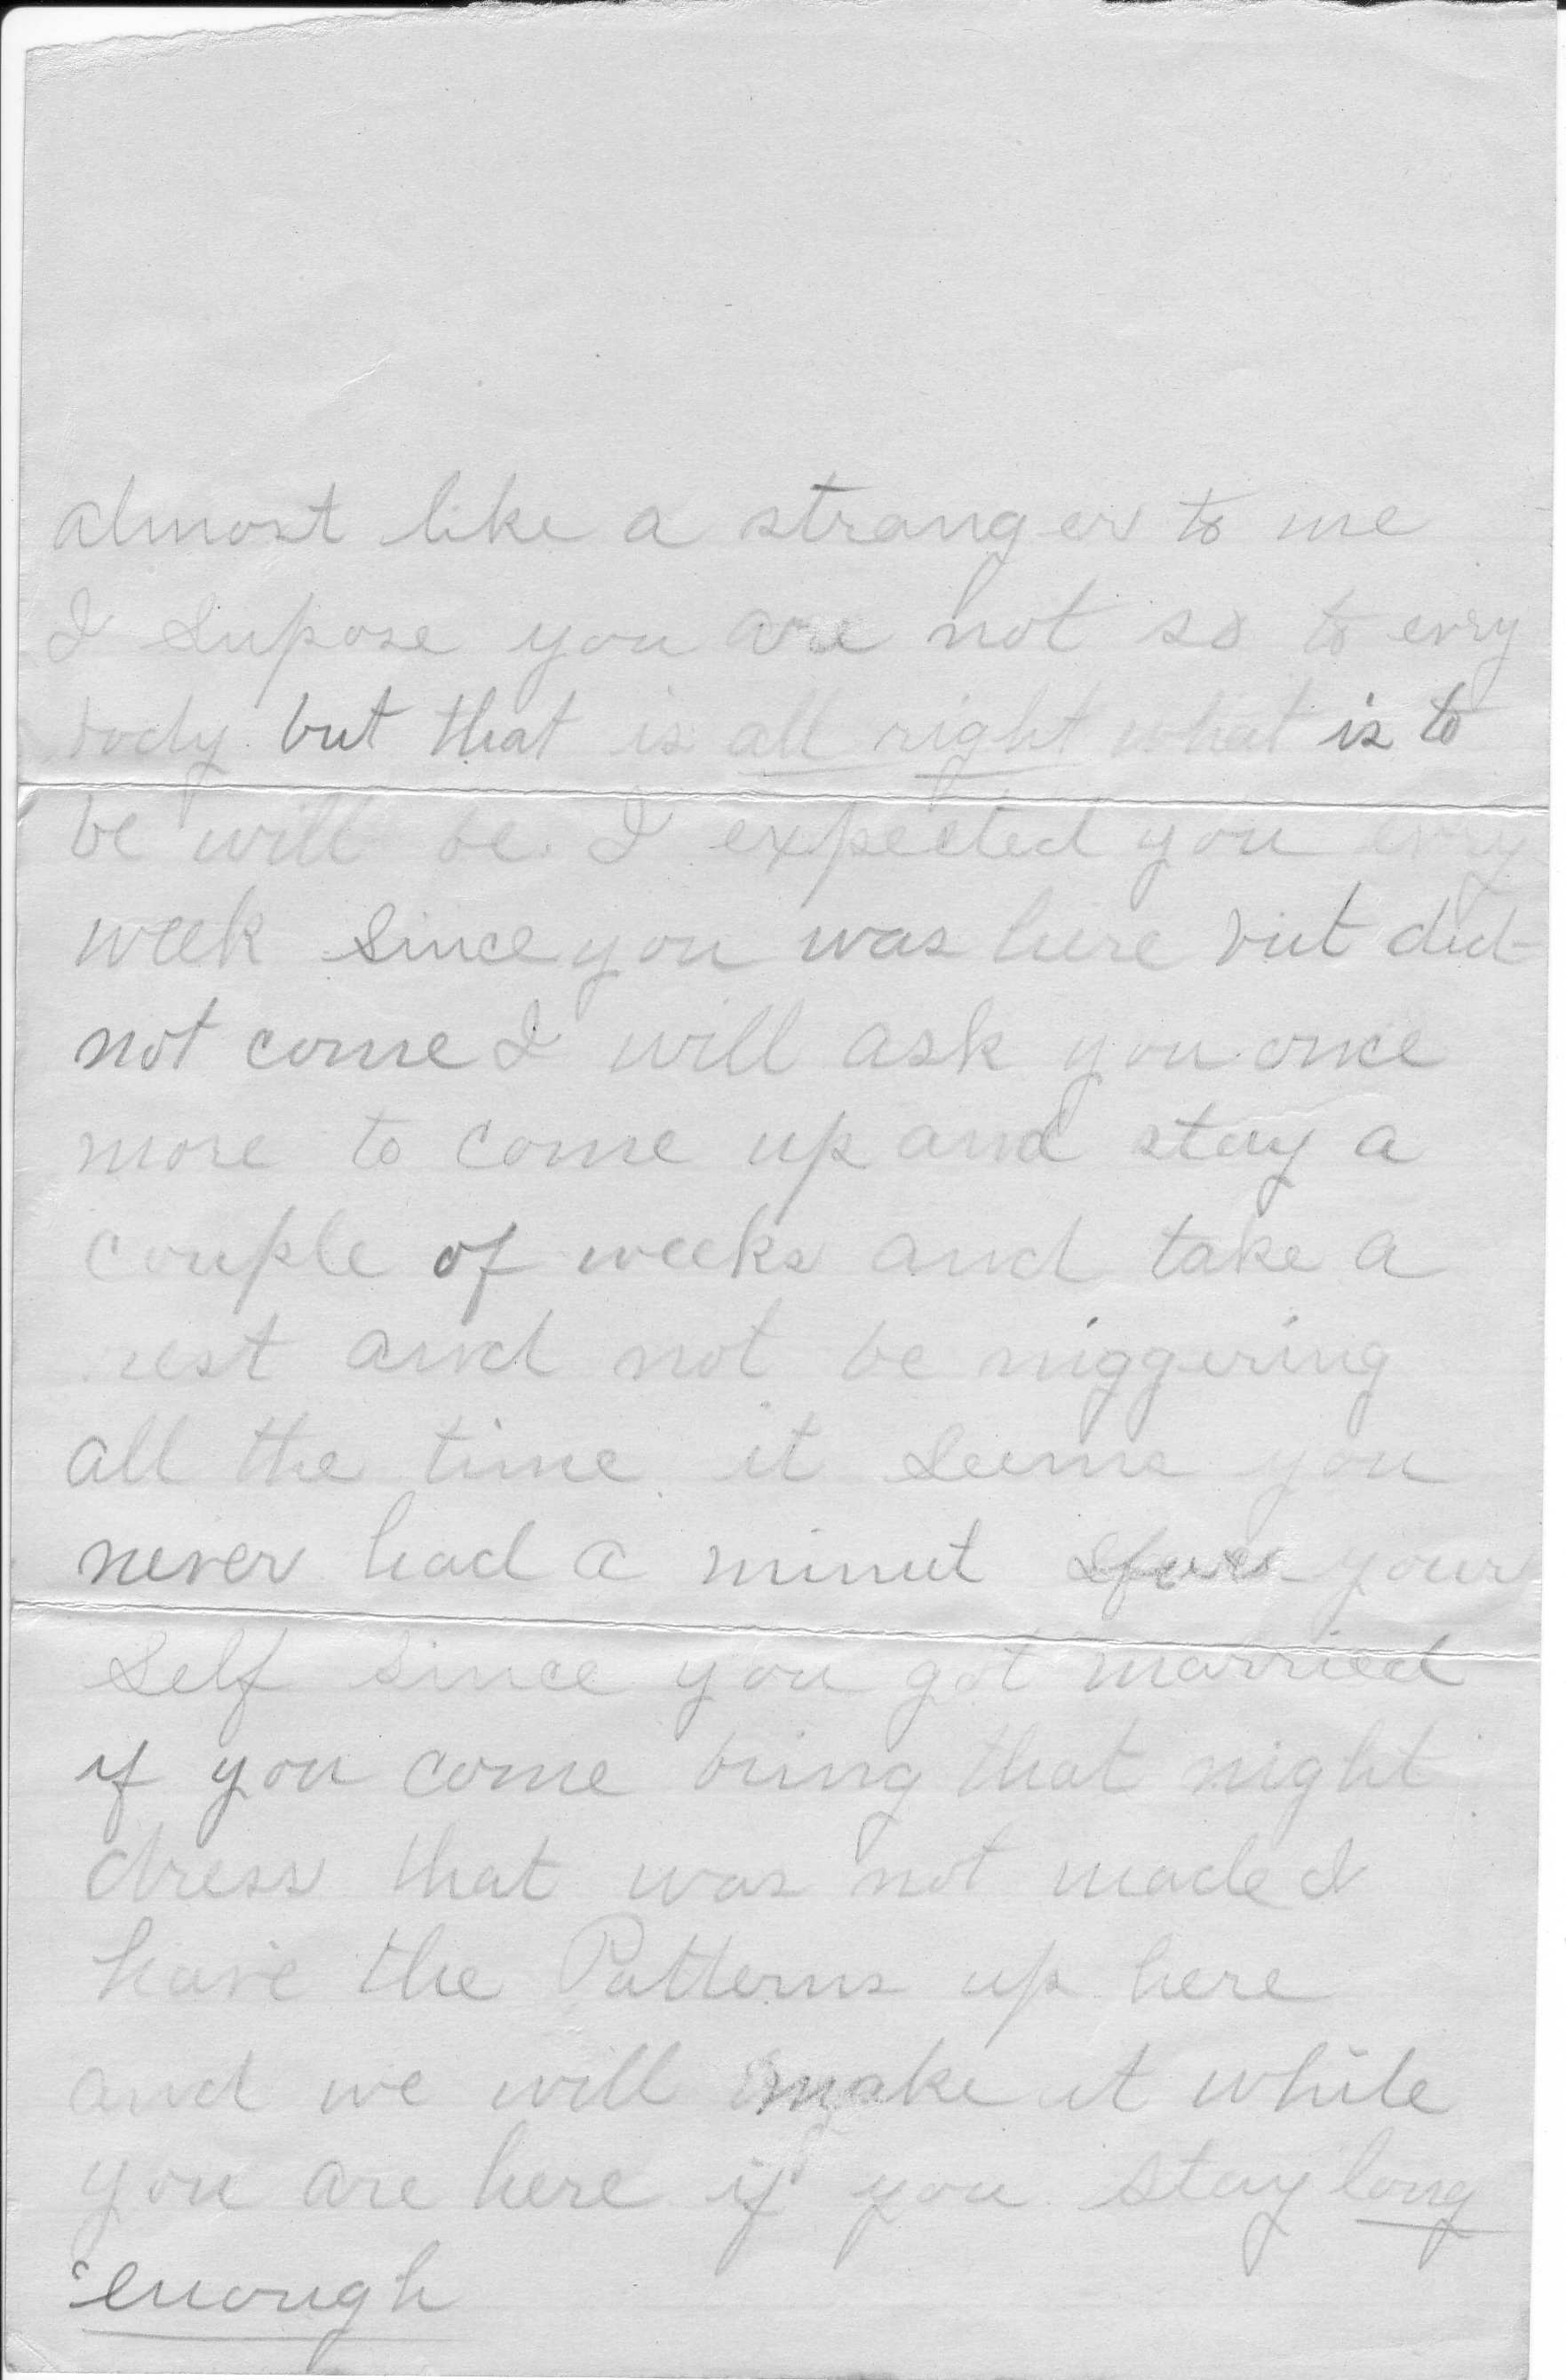 almost like a stranger to me
I supose you are not so to evry
body but that is all right what is to
be will be. I expected you evry
week since you was here but did
not come I will ask you once
more to come up and stay a
couple of weeks and take a
rest and not be niggering
all the time it seems you
never had a minut your
self since you got married
if you come bring that night
dress that was not made I
have the Patterns up here
and we will make it while
you are here if you stay long
enough